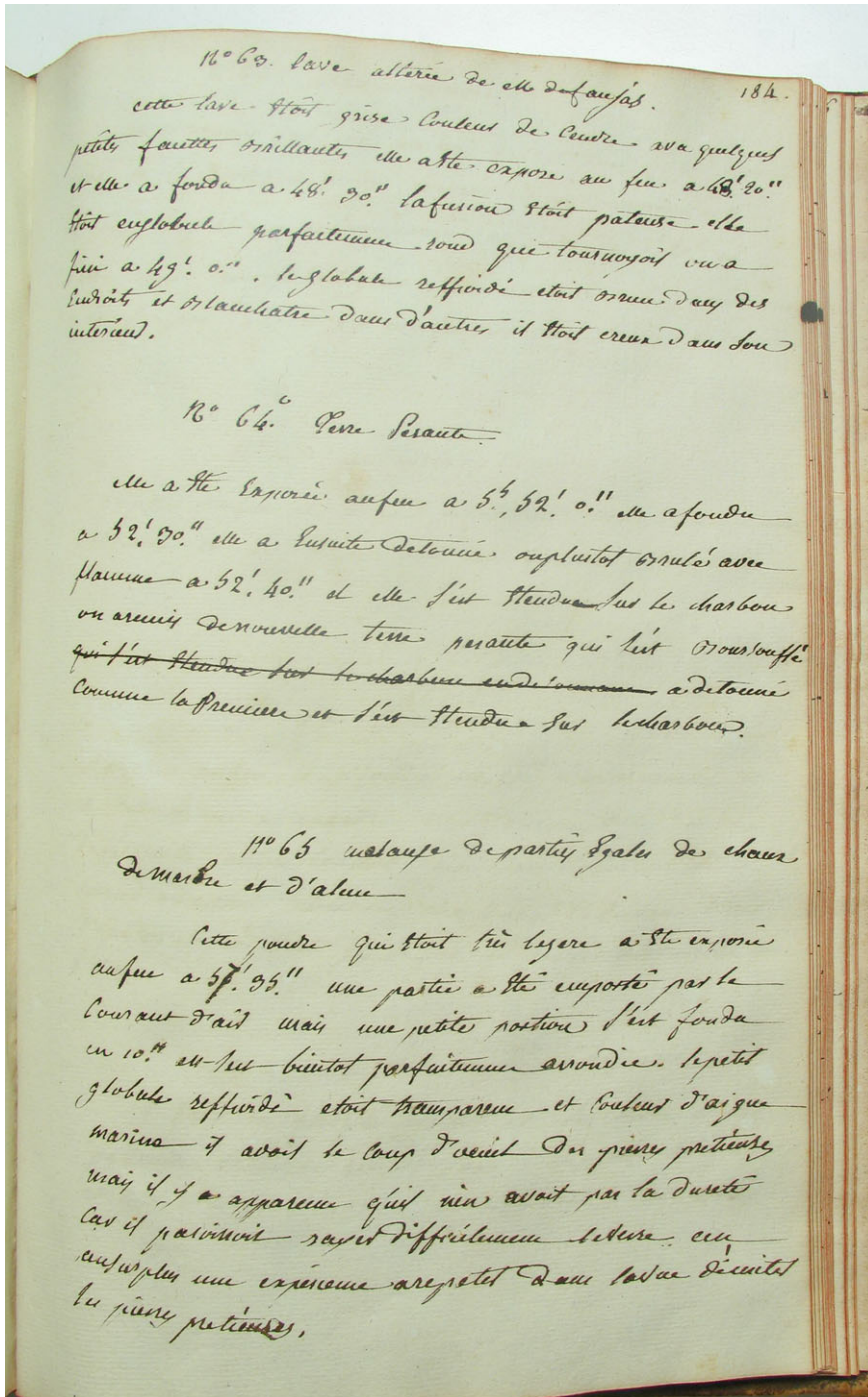 184.
N° 63. lave alterée de M. de faujas.
cette lave Etoit grise Couleur de Cendre avec quelques
petites facettes Brillantes elle a Eté exposé au feu a 48' 20."
et elle a fondu a 48'. 30." la fusion Etoit pateuse elle
Etoit englobule parfaitement rond que tournoyoit on a
fini a 49'. 0.". le globule reffroidé etoit Brun dans des
Endroits et Blanchatre dans d'autres il Etoit creux dans Son
interieur.
N° 64.° Terre Pesante.
elle a Eté Exposée au feu a 5h, 52'. 0." elle a fondu
a 52'. 30." elle a Ensuite detonné ouplustot Brulé avec
flamme a 52'. 40." et elle s'est Etendue Sur le charbon
on aremis denouvelle terre pesante qui s'est Boursoufflé
qui s'est Etendue Sur le charbon en detonnant a detonné
Comme la Premiere et s'est Etendue Sur le charbon.
N° 65 melange de parties Egales de chaux
de marbre et d'alun
Cette poudre qui Etoit très legere a Eté exposée
au feu a 57'. 35." une partie a Eté emporté par le
Courant d'air mais une petite portion s'est fondu
en 10." et s'est bientot parfaitement arrondie. le petit
globule reffroidé etoit transparent et Couleur d'aigue
marine il avoit le coup d'oeuil Des pierres pretieuses
mais il y a apparence qu'il n'en avoit pas la dureté
Car il paroissoit rayer difficilement le Verre. cen
ausurplus une expérience arepeter Dans la vue d'imiter
les pierres pretieuses.